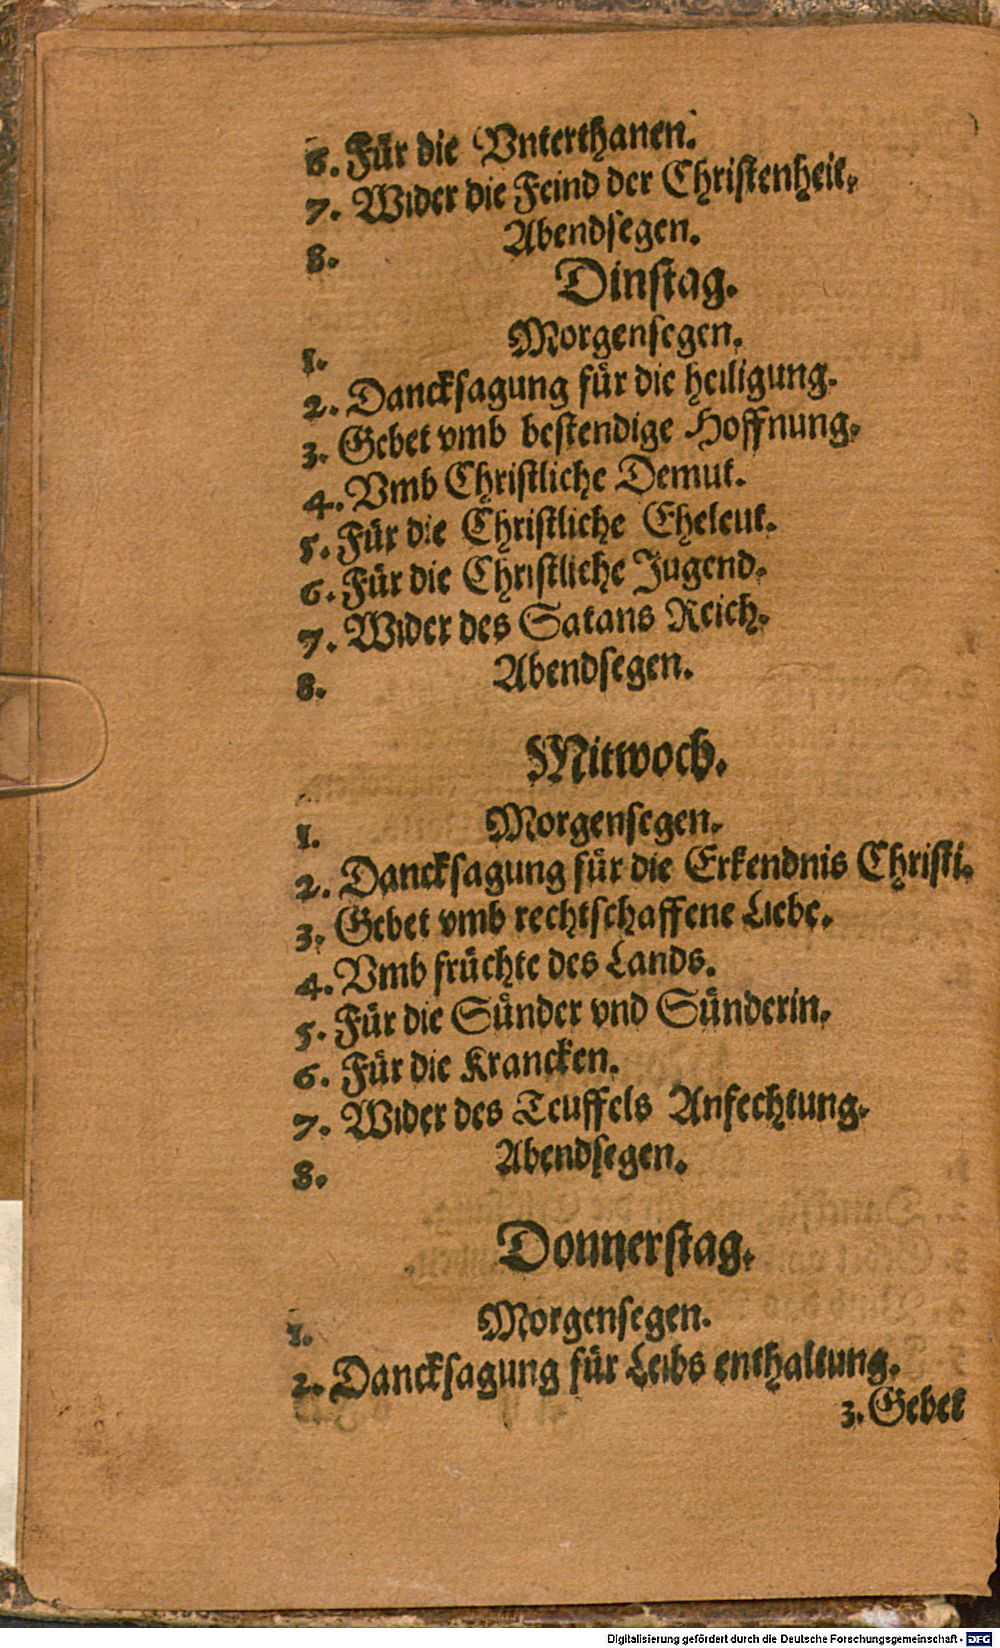 6. Für die Vnterthanen.
7. Wider die Feind der Christenheit.
8. Abendsegen.
Dinstag.
1. Morgensegen.
2. Dancksagung für die heiligung.
3. Gebet vmb bestendige Hoffnung.
4. Vmb Christliche Demut.
5. Für die Christliche Eheleut.
6. Für die Christliche Jugend.
7. Wider des Satans Reich.
8. Abendsegen.
Mittwoch.
1. Morgensegen.
2. Dancksagung für die Erkendnis Christi.
3. Gebet vmb rechtschaffene Liebe.
4. Vmb früchte des Lands.
5. Für die Sünder vnd Sünderin.
6. Für die Krancken.
7. Wider des Teuffels Anfechtung.
8. Abendsegen.
Donnerstag.
1. Morgensegen.
2. Dancksagung für Leibs enthaltung.
3. Gebet
Digitalisierung gefördert durch die Deutsche Forschungsgemeinschaft - DFG